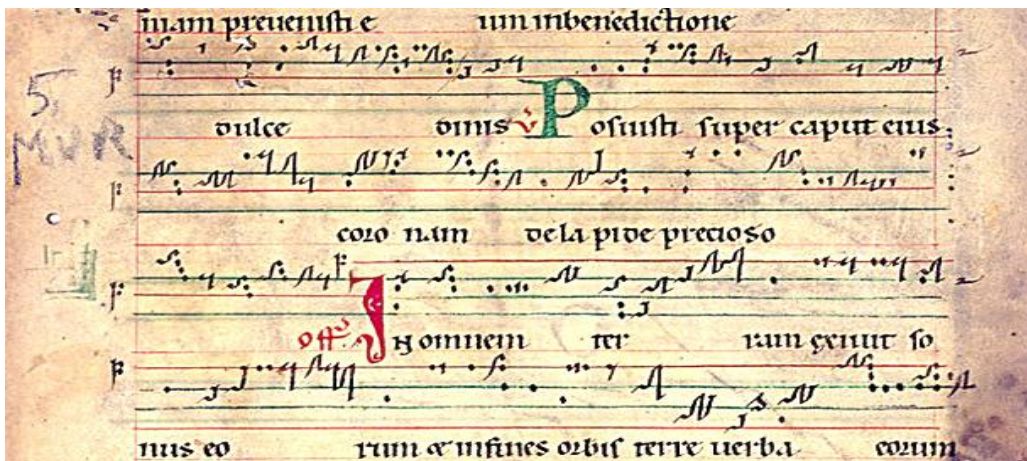 niam prevenisti e um in benedictione
dulce dinis V Posuisti super caput eius
5
MVR
coro nam de la pi de precioso
off In omnem ter ram exiuit so
nus eo rum & in fines orbis terre uerba eorum